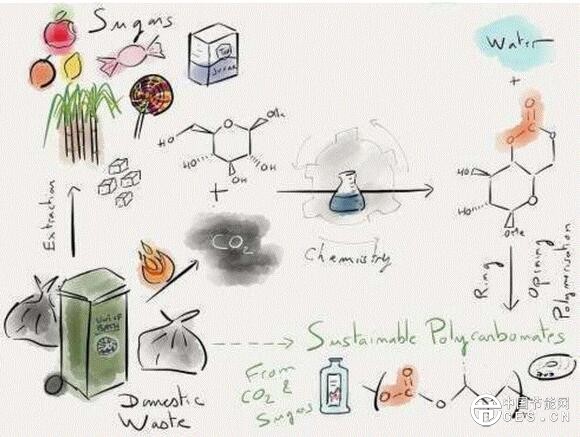 Sugars
SUGAR
Water
+
O
C
O
O
O
HO
HO
OMe
HO
O
OMe
HO
HO
OH
OH
+
Extraction
CO2
Chemistry
Ring
Opening
Polymerisation
UNIV OF
BATH
Sustainable Polycarbonates
From
CO2 &
Sugars
O
C
O
O
Domestic
Waste
中国节能网
CES.CN